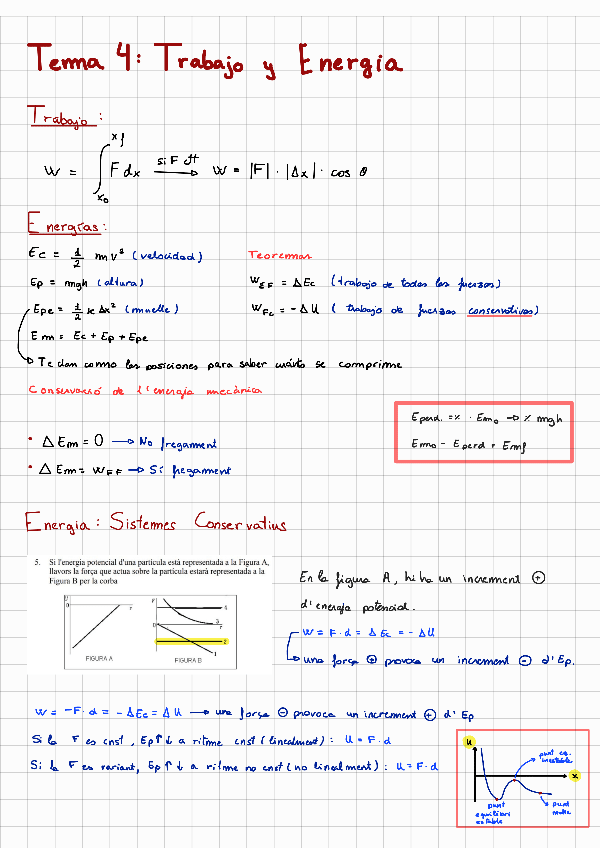 Tema 4: Trabajo y Energia
Trabajo:
W = ∫ₓ₀ˣᶠ F dx —si F ctt→ W = |F| · |Δx| · cos θ
Energías:
Ec = 1/2 mv² (velocidad)
Ep = mgh (altura)
Epe = 1/2 k Δx² (muelle)
Em = Ec + Ep + Epe
Te dan como las posiciones para saber cuánto se comprime
Teoremas
W_ΣF = ΔEc (trabajo de todas las fuerzas)
W_Fc = -ΔU (trabajo de fuerzas conservativas)
Conservació de l'energia mecànica
• ΔEm = 0 → No fregament
• ΔEm = W_FF → Sí fregament
Eperd. = % · Em₀ → % mgh
Em₀ - Eperd = Emf
Energia: Sistemes Conservatius
5. Si l'energia potencial d'una partícula està representada a la Figura A,
llavors la força que actua sobre la partícula estarà representada a la
Figura B per la corba
U
0
r
FIGURA A
F
0
4
3
r
2
1
FIGURA B
En la figura A, hi ha un increment ⊕
d'energia potencial.
W = F · d = ΔEc = -ΔU
una força ⊕ provoca un increment ⊖ d'Ep.
W = -F · d = -ΔEc = ΔU → una força ⊖ provoca un increment ⊕ d'Ep
Si la F es cnst, Ep↑↓ a ritme cnst (linealment): U = F·d
Si la F es variant, Ep↑↓ a ritme no cnst (no linealment): U = F·d
U
punt eq.
inestable
x
punt
equilibri
estable
punt